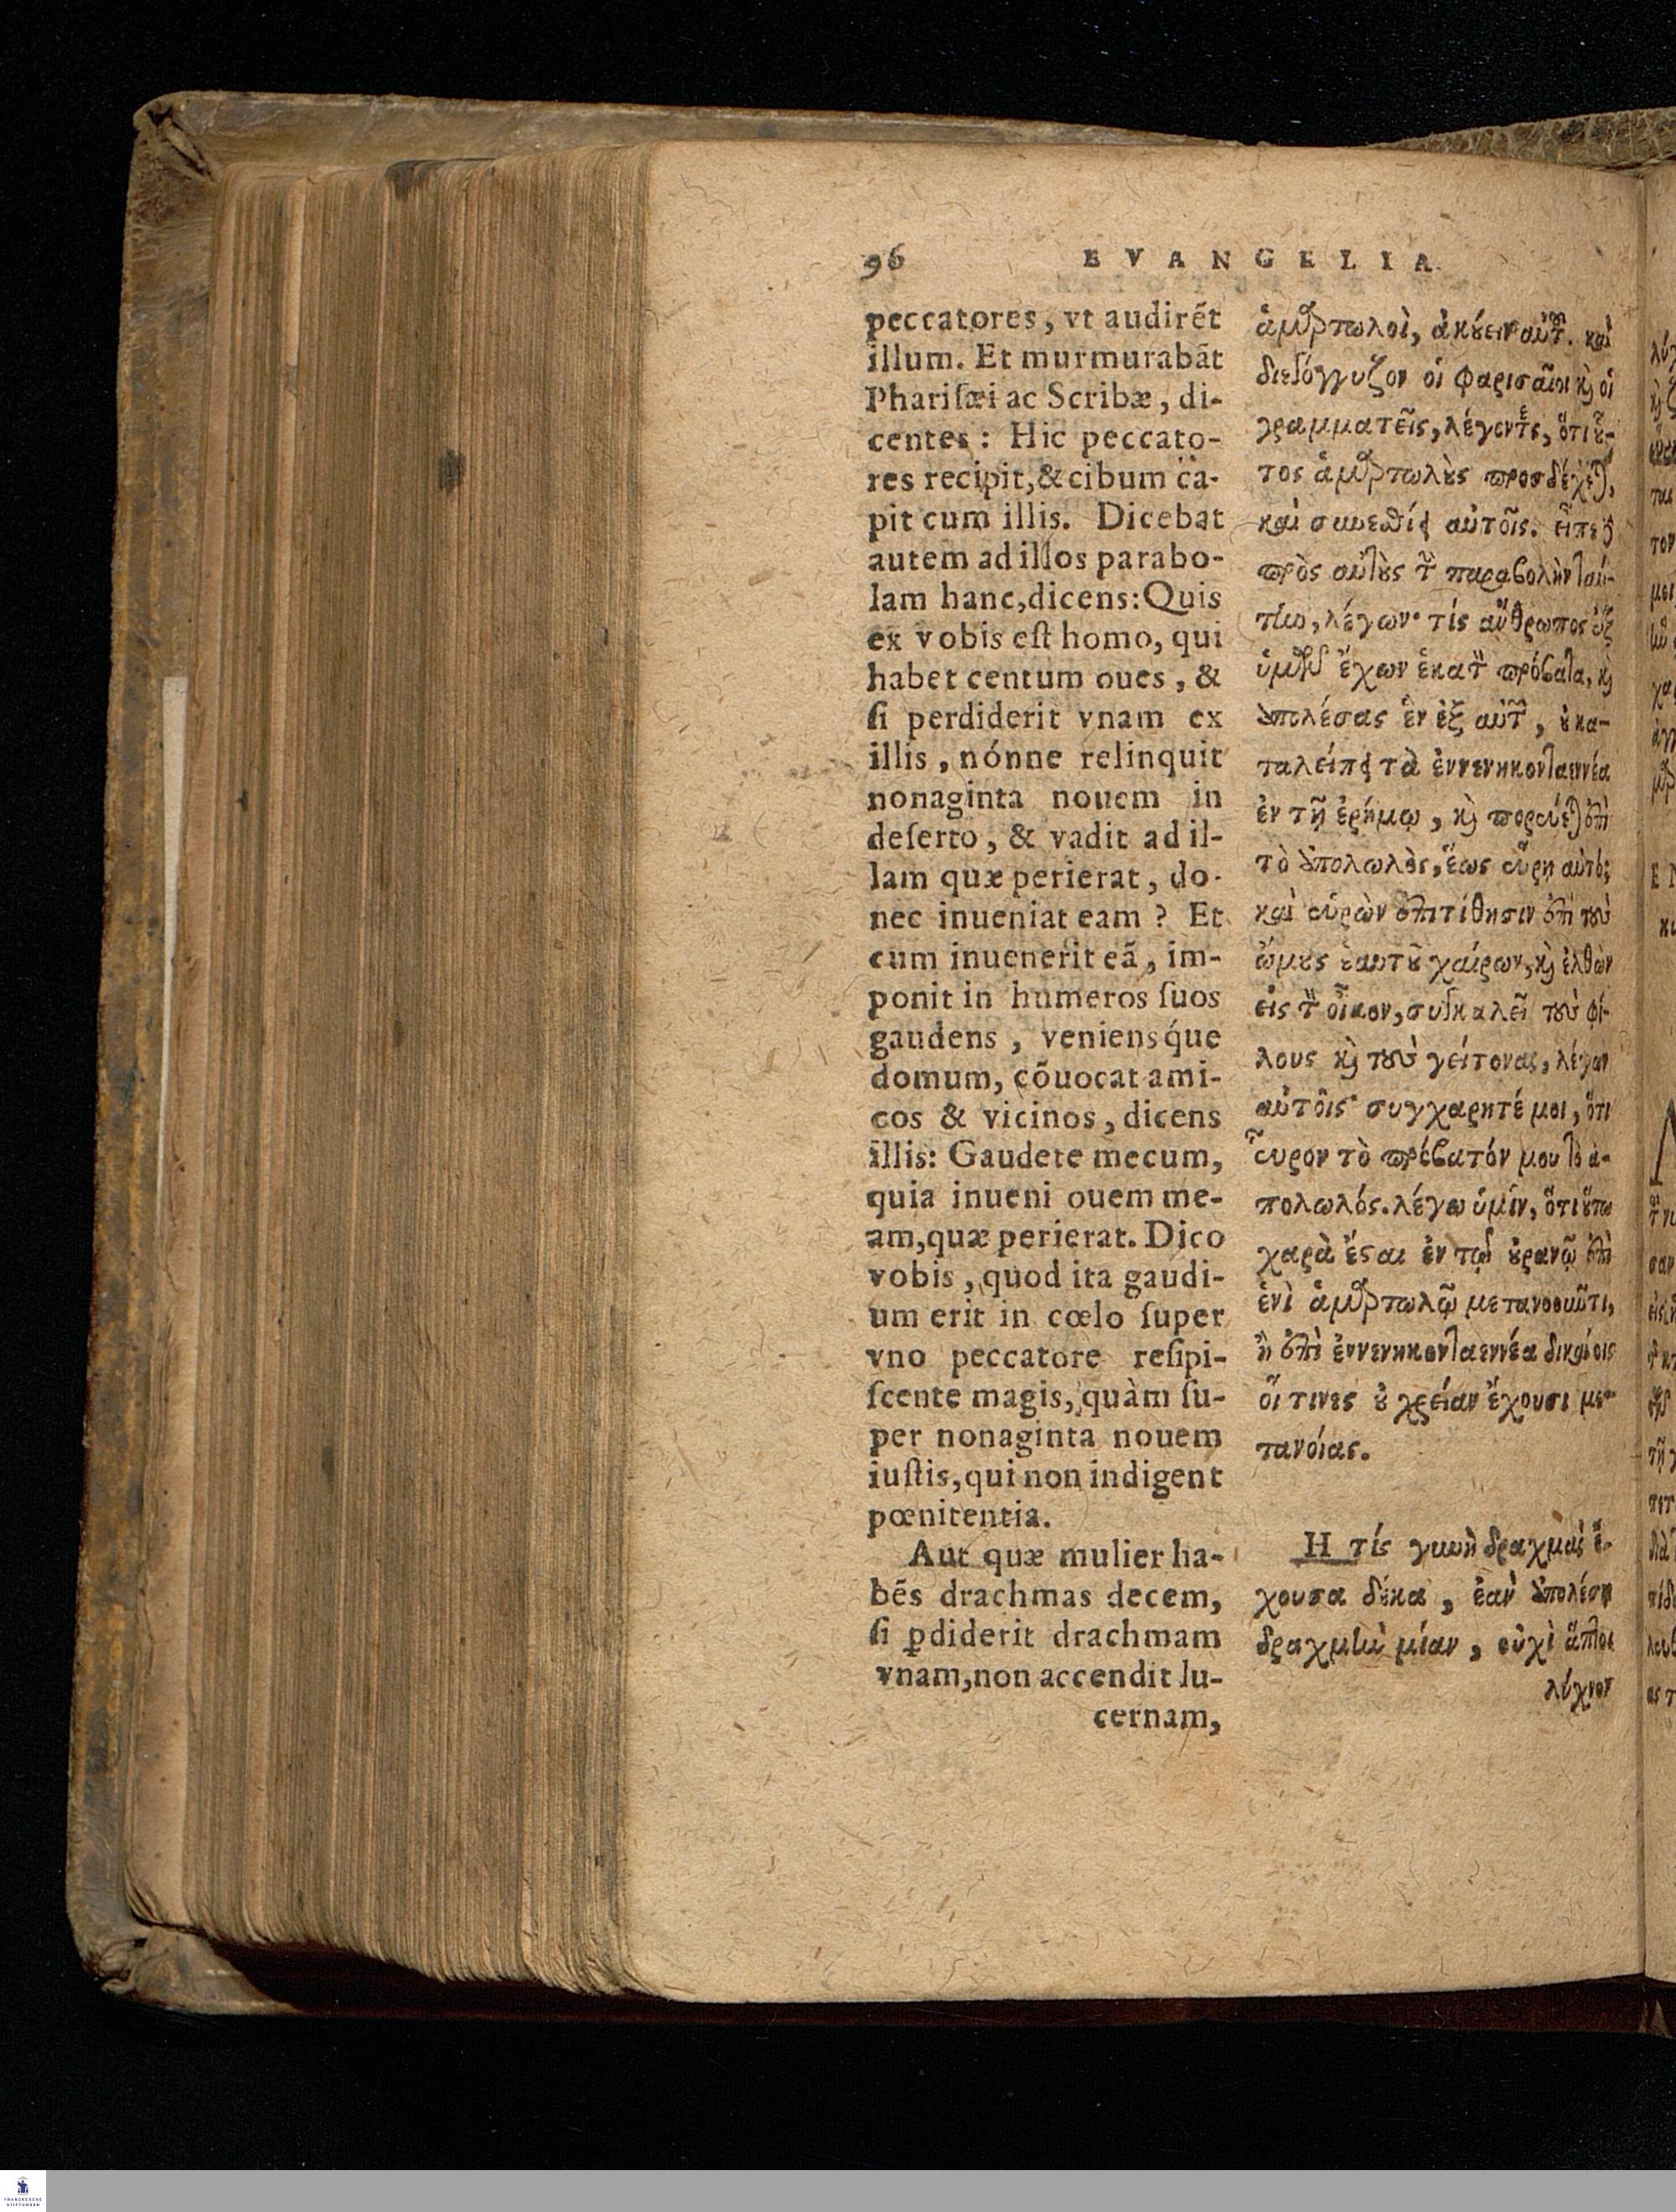 96 EVANGELIA
peccatores, vt audirẽt
illum. Et murmurabãt
Phariſæi ac Scribæ, di-
centes: Hic peccato-
res recipit, & cibum ca-
pit cum illis. Dicebat
autem ad illos parabo-
lam hanc, dicens: Quis
ex vobis eſt homo, qui
habet centum oues, &
ſi perdiderit vnam ex
illis, nónne relinquit
nonaginta nouem in
deſerto, & vadit ad il-
lam quæ perierat, do-
nec inueniat eam? Et
cum inuenerit eã, im-
ponit in humeros ſuos
gaudens, veniensq́ue
domum, cõuocat ami-
cos & vicinos, dicens
illis: Gaudete mecum,
quia inueni ouem me-
am, quæ perierat. Dico
vobis, quod ita gaudi-
um erit in cœlo ſuper
vno peccatore reſipi-
ſcente magis, quàm ſu-
per nonaginta nouem
iuſtis, qui non indigent
pœnitentia.
Aut quæ mulier ha-
bẽs drachmas decem,
ſi ꝑdiderit drachmam
vnam, non accendit lu-
cernam,
ἁμαρτωλοὶ, ἀκȣ́ειν αὐτȣ͂. καὶ
διεγόγγυζον οἱ φαρισαῖοι κỳ οἱ
γραμματεῖς, λέγοντες, ὅτι ȣ̔͂-
τος ἁμαρτωλȣ̀ς προσδέχεται,
καὶ συνεσθίει αὐτοῖς. εἶπε δὲ
πρὸς αὐτȣ̀ς τὴν παραβολὴν ταύ-
την, λέγων· τίς ἄνθρωπος ἐξ
ὑμῶν ἔχων ἑκατὸν πρόβατα, κỳ
ἀπολέσας ἓν ἐξ αὐτῶν, ȣ̓ κα-
ταλείπει τὰ ἐννενηκονταεννέα
ἐν τῇ ἐρήμῳ, κỳ πορεύεται ἐπὶ
τὸ ἀπολωλὸς, ἕως εὕρῃ αὐτό;
καὶ εὑρὼν ἐπιτίθησιν ἐπὶ τοὺς
ὤμȣς ἑαυτȣ͂ χαίρων, κỳ ἐλθὼν
εἰς τὸν οἶκον, συγκαλεῖ τοὺς φί-
λους κỳ τοὺς γείτονας, λέγων
αὐτοῖς· συγχαρητέ μοι, ὅτι
εὗρον τὸ πρόβατόν μου τὸ ἀ-
πολωλός. λέγω ὑμῖν, ὅτι ȣ̔́τω
χαρὰ ἔσαι ἐν τῷ ȣ̓ρανῷ ἐπὶ
ἑνὶ ἁμαρτωλῷ μετανοοῦντι,
ἢ ἐπὶ ἐννενηκονταεννέα δικαίοις
οἵ τινες ȣ̓ χρείαν ἔχουσι με-
τανοίας.
Η τίς γυνὴ δραχμὰς ἔ-
χουσα δέκα, ἐὰν ἀπολέσῃ
δραχμὴν μίαν, οὐχὶ ἅπτει
λύχνον
FRANCKESCHE
STIFTUNGEN